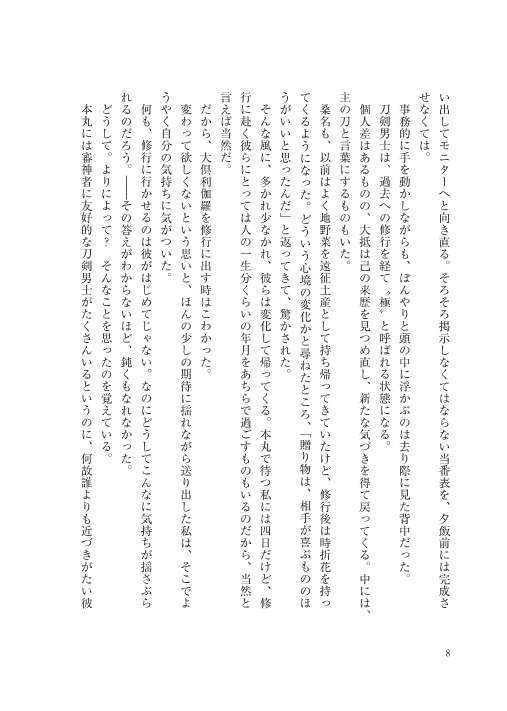 い出してモニターへと向き直る。そろそろ掲示しなくてはならない当番表を、夕飯前には完成さ
せなくては。
事務的に手を動かしながらも、ぼんやりと頭の中に浮かぶのは去り際に見た背中だった。
刀剣男士は、過去への修行を経て〝極〟と呼ばれる状態になる。
個人差はあるものの、大抵は己の来歴を見つめ直し、新たな気づきを得て戻ってくる。中には、
主の刀と言葉にするものもいた。
桑名も、以前はよく地野菜を遠征土産として持ち帰ってきていたけど、修行後は時折花を持っ
てくるようになった。どういう心境の変化かと尋ねたところ、「贈り物は、相手が喜ぶもののほ
うがいいと思ったんだ」と返ってきて、驚かされた。
そんな風に、多かれ少なかれ、彼らは変化して帰ってくる。本丸で待つ私には四日だけど、修
行に赴く彼らにとっては人の一生分くらいの年月をあちらで過ごすものもいるのだから、当然と
言えば当然だ。
だから、大倶利伽羅を修行に出す時はこわかった。
変わって欲しくないという思いと、ほんの少しの期待に揺れながら送り出した私は、そこでよ
うやく自分の気持ちに気がついた。
何も、修行に行かせるのは彼がはじめてじゃない。なのにどうしてこんなに気持ちが揺さぶら
れるのだろう。――その答えがわからないほど、鈍くもなれなかった。
どうして。よりによって？　そんなことを思ったのを覚えている。
本丸には審神者に友好的な刀剣男士がたくさんいるというのに、何故誰よりも近づきがたい彼
8